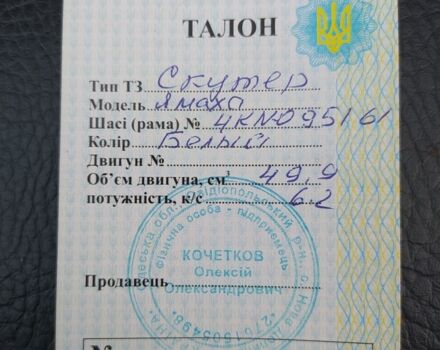 ТАЛОН
Тип ТЗ Скутер
Модель Ямаха
Шасі (рама) № 4KN095161
Колір Белый
Двигун №
Об’єм двигуна, см³ 49,9
потужність, к/с 6.2
Одеська обл., Овідіопольський р-н, с. Нова
фізична особа - підприємець
КОЧЕТКОВ
Олексій
Олександрович
Продавець